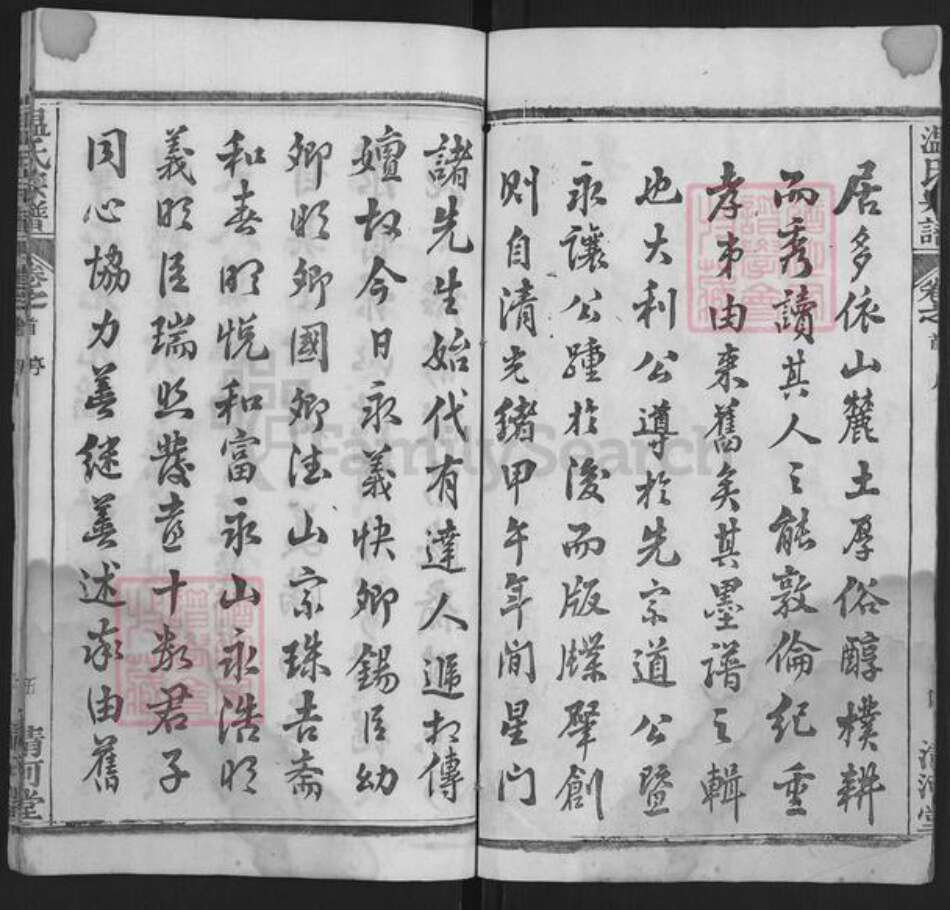 居多依山麓土厚俗醇樸耕
而秀讀其人之能敦倫紀重
孝弟由來舊矣其墨譜之輯
也大利公導於先宗道公暨
永讓公踵於後而版牒肇創
則自清光緒甲午年間星門
諸先生始代有達人遞相傳
嬗故今日永義快卿錫臣幼
卿明卿國卿德山宗珠吉齋
和春明悅和富永山永浩明
義明臣瑞熙發意十數君子
同心協力善繼善述率由舊
溫氏族譜
卷之首
清河堂
FamilySearch